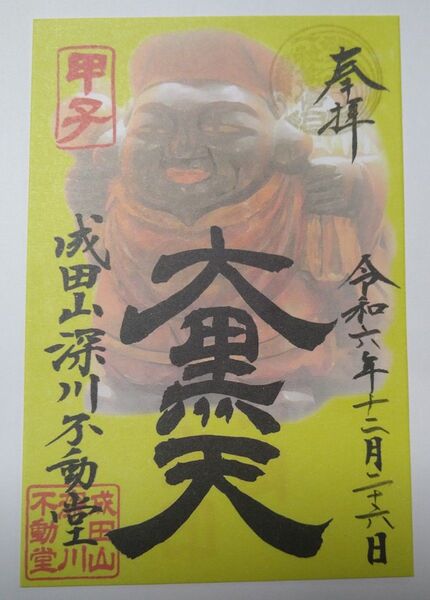 奉拝
令和六年十二月二十六日
大黒天
甲子
成田山深川不動堂
成田山
深川
不動堂